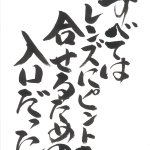 すべては
レンズにピント
合せるための
入口だった